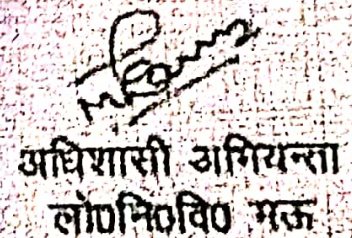 अधिशासी अभियन्ता
लो०नि०वि० मऊ